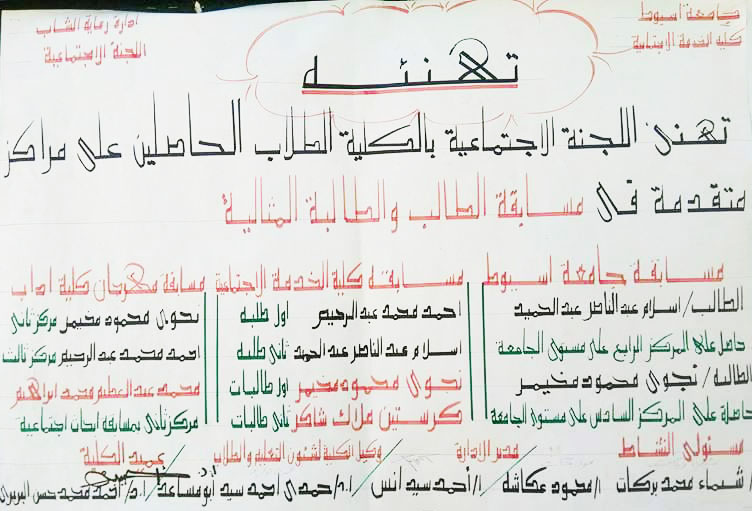 جامعة اسيوط
كلية الخدمة الاجتماعية
ادارة رعاية الشباب
اللجنة الاجتماعية
تهنئه
تهنئ اللجنة الاجتماعية بالكلية الطلاب الحاصلين على مراكز
متقدمة فى مسابقة الطالب والطالبة المثالية
مسابقة جامعة اسيوط
الطالب/ اسلام عبد الناصر عبد الحميد
حاصل على المركز الرابع على مستوى الجامعة
الطالبه/ نجوى محمود مخيمر
حاصلة على المركز السادس على مستوى الجامعة
مسابقه كلية الخدمة الاجتماعية
احمد محمد عبد الرحيم اول طلبه
اسلام عبد الناصر عبد الحميد ثانى طلبه
نجوى محمود مخيمر اول طالبات
كرستين ملاك شاكر ثانى طالبات
مسابقه مهرجان كلية اداب
نجوى محمود مخيمر مركز ثانى
احمد محمد عبد الرحيم مركز ثالث
محمد عبد العظيم محمد ابراهيم
مركز ثانى بمسابقه ابحاث اجتماعية
مسئولى النشاط
مدير الادارة
وكيل الكلية لشئون التعليم والطلاب
عميد الكلية
ا/ شيماء محمد بركات ا/ محمود عكاشه ا/ أحمد سيد انس ا.م.د/ حمدى احمد سيد أبو مساعد ا.د/ أحمد محمد حسن